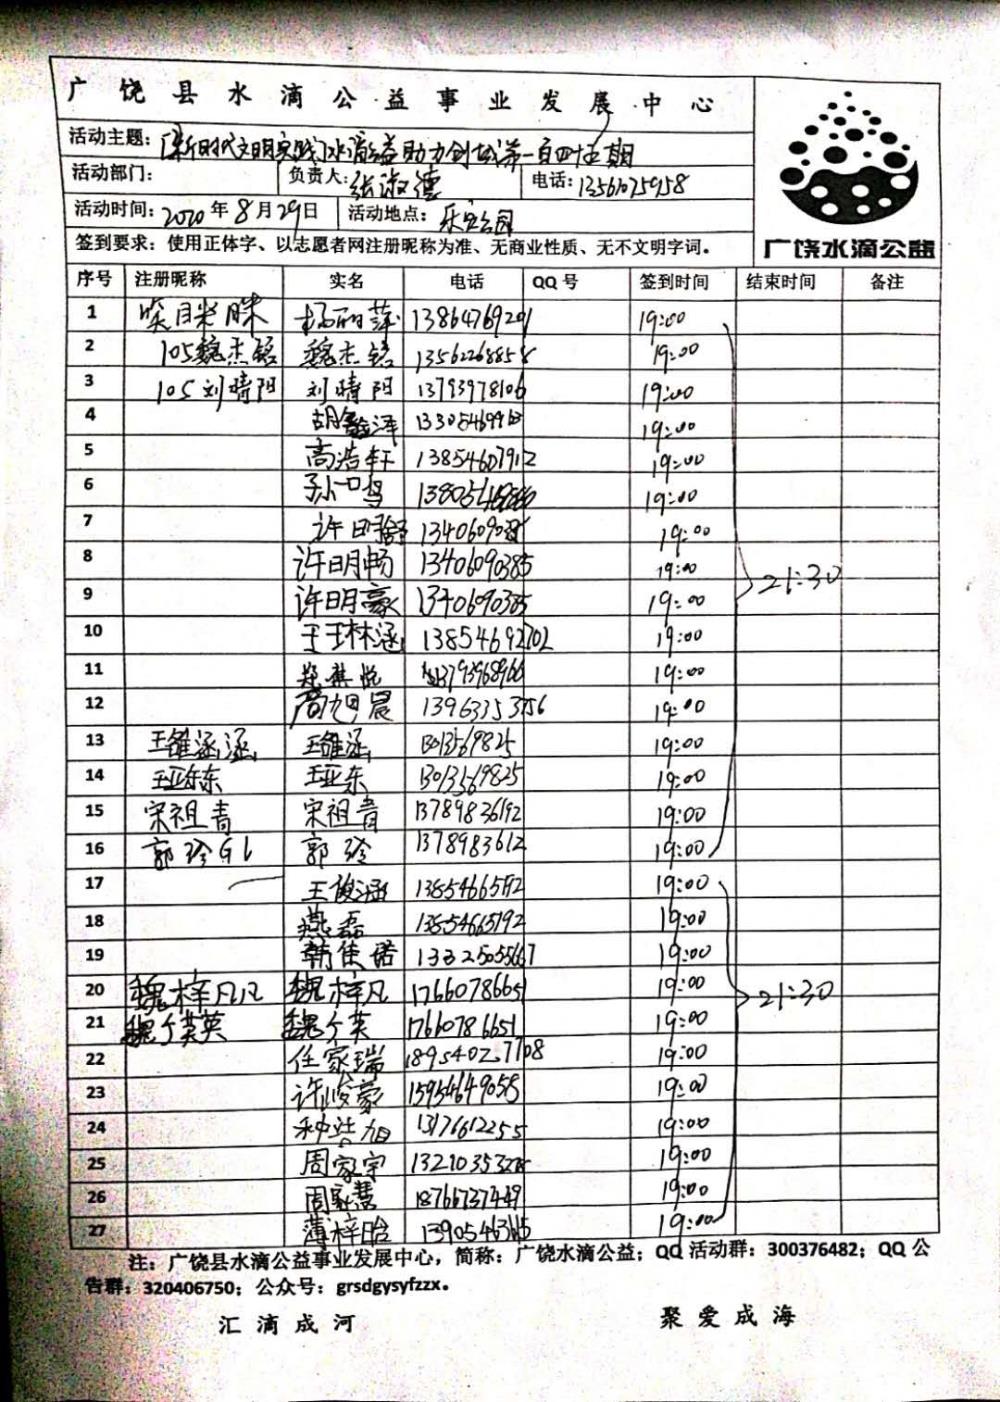 广饶县水滴公益事业发展中心
活动主题：【新时代文明实践】水滴公益助力创城第一百四十五期
活动部门： 负责人：张淑德 电话：13561075958
活动时间：2020年8月29日 活动地点：乐安公园
签到要求：使用正体字、以志愿者网注册昵称为准、无商业性质、无不文明字词。
广饶水滴公益
序号 注册昵称 实名 电话 QQ号 签到时间 结束时间 备注
1 笑眯眯 杨丽萍 13864769201 19:00
2 105魏杰铭 魏杰铭 13562268858 19:00
3 105刘晴阳 刘晴阳 13793978106 19:00
4 19:00
5 高浩轩 13854607912 19:00
6 孙一鸣 19:00
7 许明舒 13406090385 19:00
8 许明畅 13406090385 19:00 21:30
9 许明豪 13406090385 19:00
10 于玉林涵 13854692702 19:00
11 郑棋悦 13793968966 19:00
12 周旭晨 13963353756 19:00
13 王维涵涵 王维涵 19:00
14 王亚东东 王亚东 19:00
15 宋祖青 宋祖青 13789836192 19:00
16 郭玲GL 郭玲 19:00
17 王俊涵 13854665192 19:00
18 燕磊 13854665192 19:00
19 韩佳诺 13325055667 19:00
20 魏梓凡凡 魏梓凡 17660786651 19:00 21:30
21 17660786651 19:00
22 任家瑞 18954027708 19:00
23 许峻豪 15954649058 19:00
24 13176612255 19:00
25 周家宇 19:00
26 周家慧 18766737449 19:00
27 薄梓晗 19:00
注：广饶县水滴公益事业发展中心，简称：广饶水滴公益；QQ活动群：300376482；QQ公
告群：320406750；公众号：grsdgysyfzzx。
汇滴成河 聚爱成海